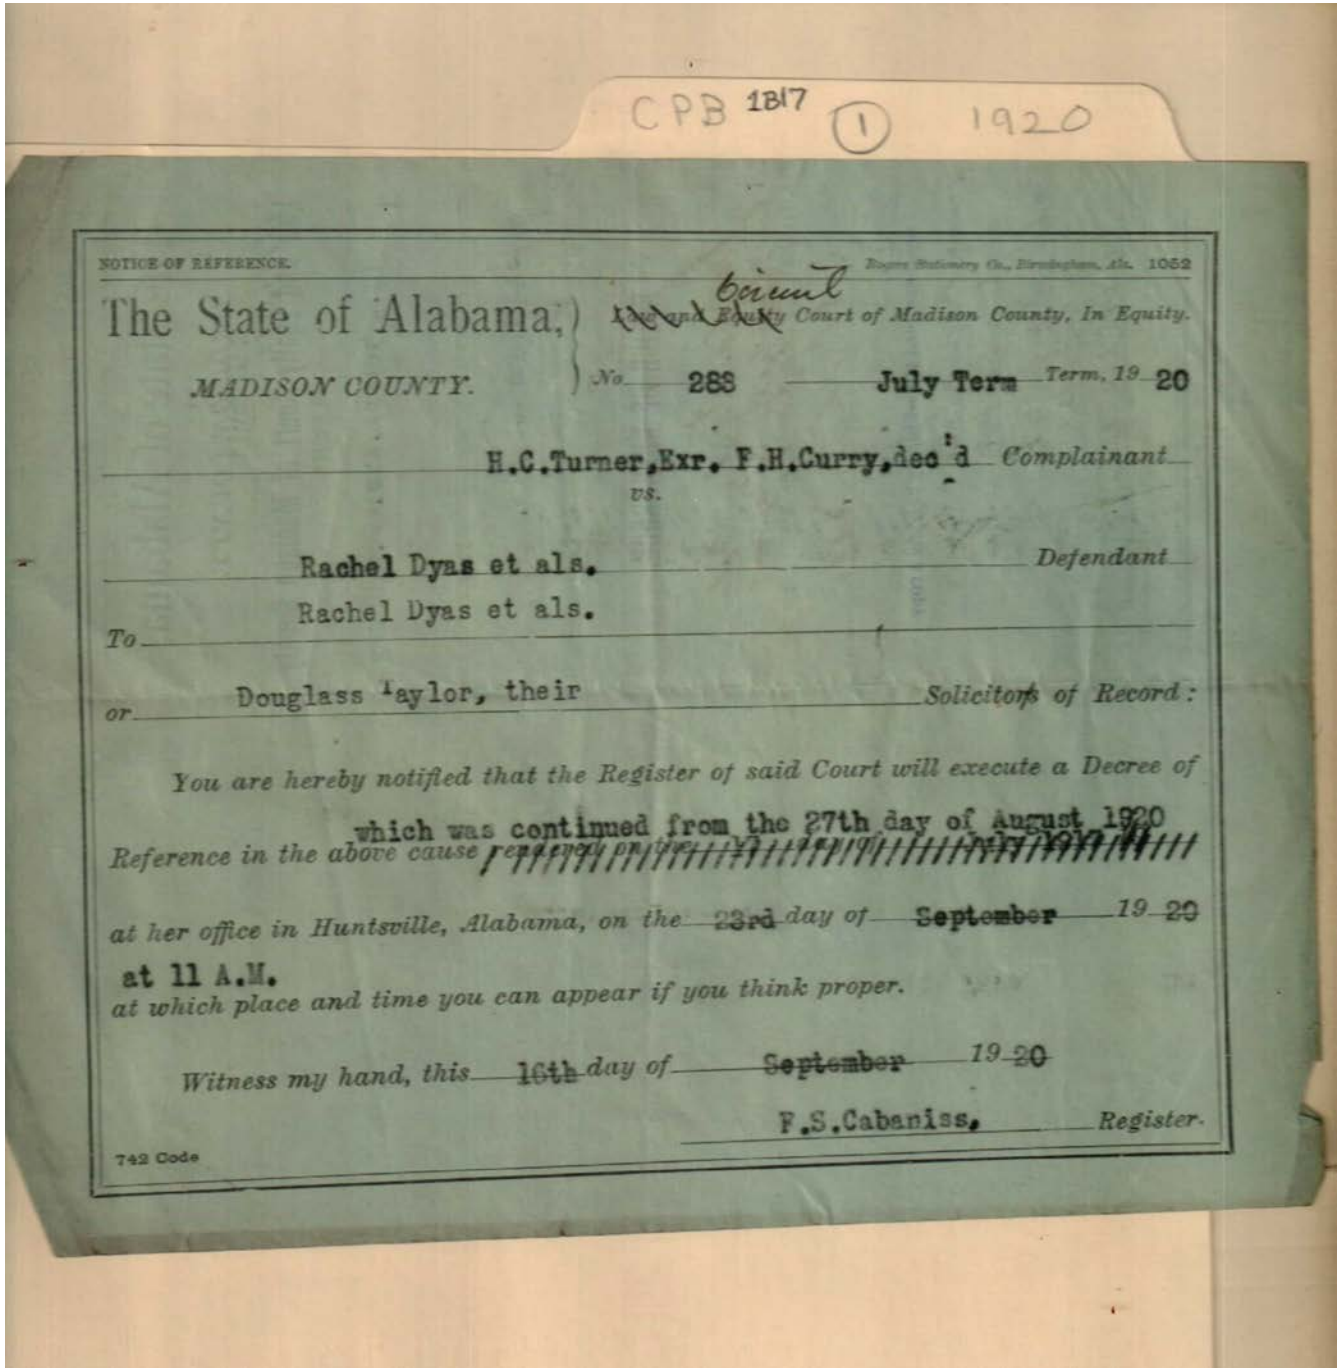 CPB 1817 1 1920
NOTICE OF REFERENCE. Rogers Stationery Co., Birmingham, Ala. 1052
Circuit
The State of Alabama, Law and Equity Court of Madison County, In Equity.
MADISON COUNTY. No. 288 July Term Term, 19 20
H.C.Turner,Exr. F.H.Curry,dec'd Complainant
vs.
Rachel Dyas et als. Defendant
Rachel Dyas et als.
To
or Douglass Taylor, their Solicitors of Record:
You are hereby notified that the Register of said Court will execute a Decree of
which was continued from the 27th day of August 1920
Reference in the above cause rendered on the day of
at her office in Huntsville, Alabama, on the 23rd day of September 19 20
at 11 A.M.
at which place and time you can appear if you think proper.
Witness my hand, this 16th day of September 19 20
F.S.Cabaniss, Register.
742 Code